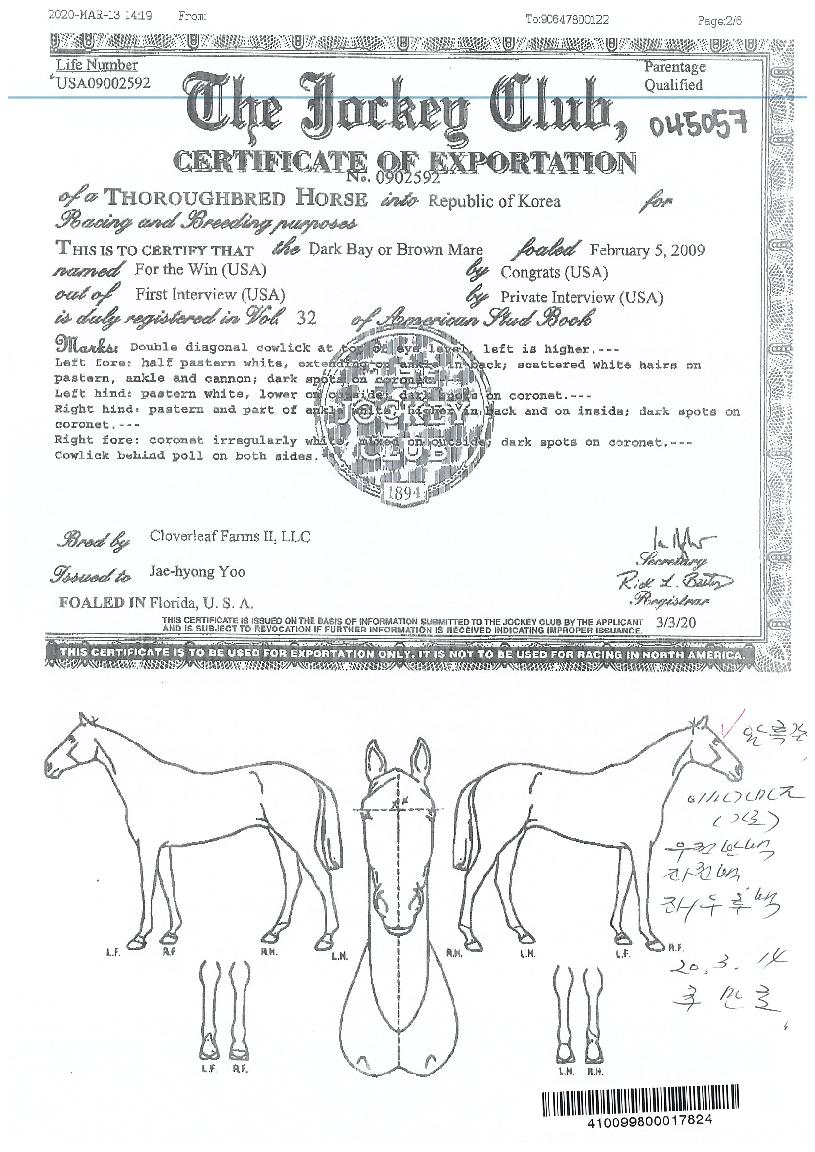 2020-MAR-13 14:19 From: To:90647800122 Page:2/6
Life Number
USA09002592
Parentage
Qualified
The Jockey Club,
045057
CERTIFICATE OF EXPORTATION
No. 0902592
of a THOROUGHBRED HORSE into Republic of Korea for
Racing and Breeding purposes
THIS IS TO CERTIFY THAT the Dark Bay or Brown Mare foaled February 5, 2009
named For the Win (USA) by Congrats (USA)
out of First Interview (USA) by Private Interview (USA)
is duly registered in Vol. 32 of American Stud Book
Marks: Double diagonal cowlick at top of eye level, left is higher.---
Left fore: half pastern white, extending on ankle in back; scattered white hairs on
pastern, ankle and cannon; dark spots on coronet.
Left hind: pastern white, lower on outside; dark spots on coronet.---
Right hind: pastern and part of ankle white, higher in back and on inside; dark spots on
coronet.---
Right fore: coronet irregularly white, mixed on outside; dark spots on coronet.---
Cowlick behind poll on both sides.
THE
JOCKEY
CLUB
1894
Bred by Cloverleaf Farms II, LLC
Secretary
Issued to Jae-hyong Yoo
Rick L. Bailey
Registrar
FOALED IN Florida, U. S. A.
THIS CERTIFICATE IS ISSUED ON THE BASIS OF INFORMATION SUBMITTED TO THE JOCKEY CLUB BY THE APPLICANT
AND IS SUBJECT TO REVOCATION IF FURTHER INFORMATION IS RECEIVED INDICATING IMPROPER ISSUANCE.
3/3/20
THIS CERTIFICATE IS TO BE USED FOR EXPORTATION ONLY. IT IS NOT TO BE USED FOR RACING IN NORTH AMERICA.
L.F. R.F. R.H. L.H. R.H. L.H. L.F. R.F.
20.3.14
L.F. R.F. L.H. R.H.
410099800017824